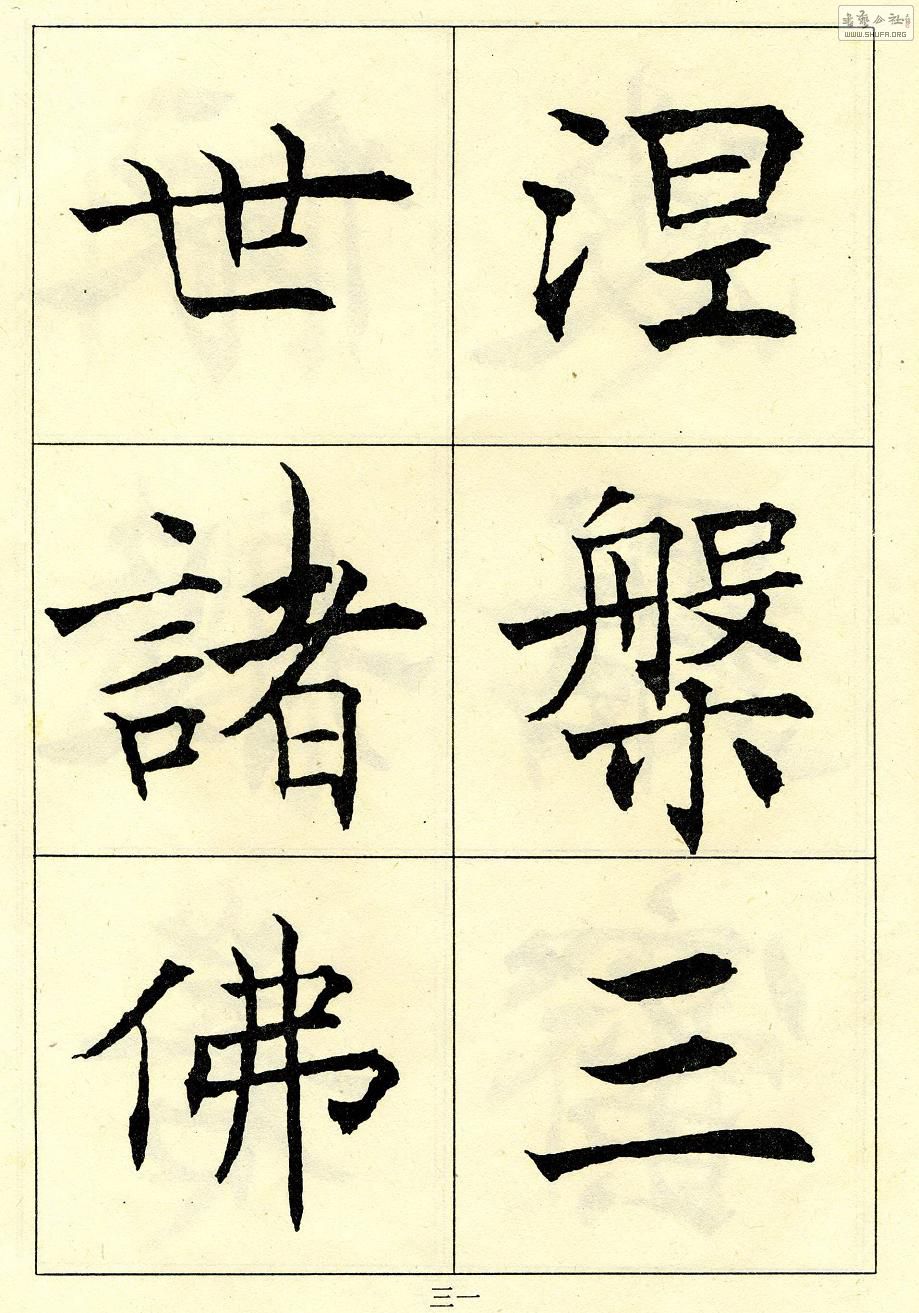 書藝公社
WWW.SHUFA.ORG
涅槃三
世諸佛
三一